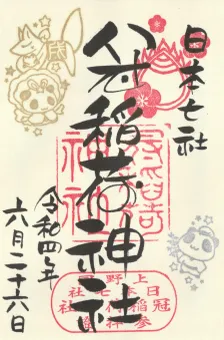 日本七社
冠稲荷神社
令和四年
六月二十六日
上野国
日本七社
冠稲荷神社
参拝